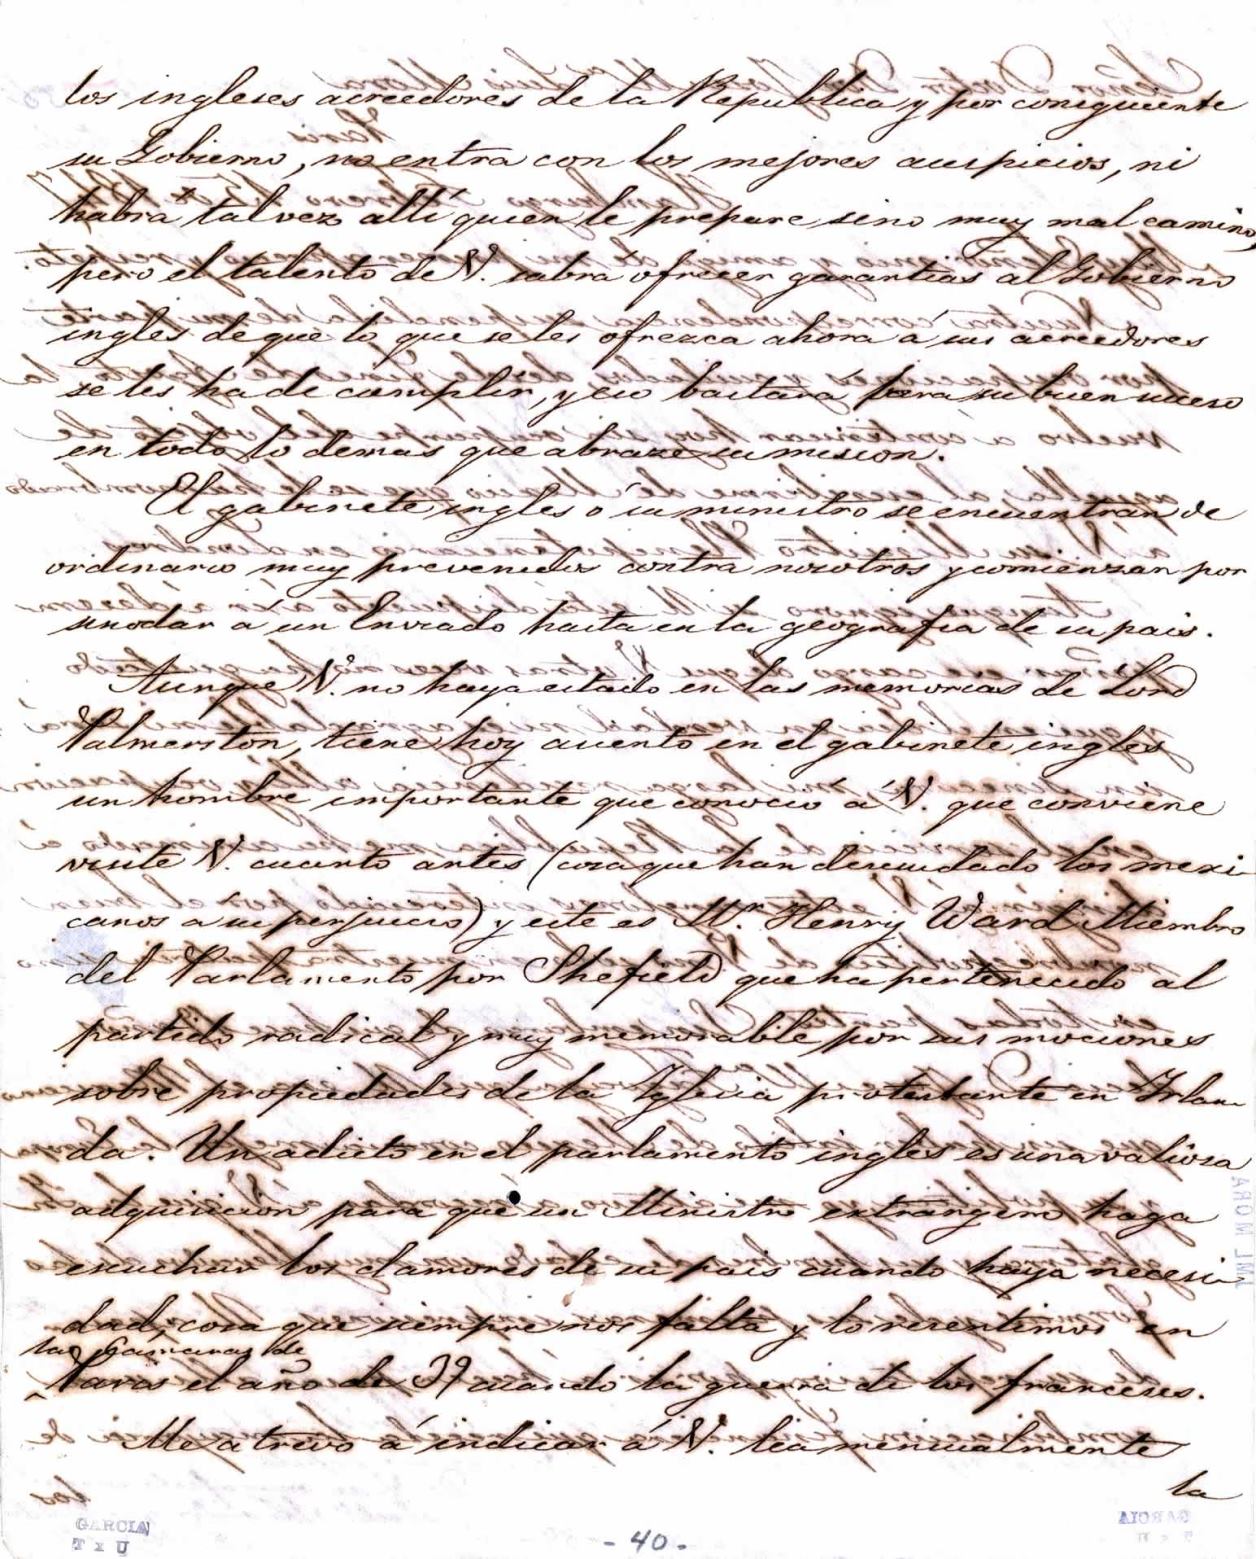 los ingleses acreedores de la Republica y por consiguiente
su Gobierno, no entra con los mejores auspicios, ni
habrá talvez allí quien le prepare sino muy mal camino,
pero el talento de V. sabra ofrecer garantias al Gobierno
ingles de que lo que se les ofrezca ahora á sus acreedores
se les ha de cumplir, y eso bastará para su buen suceso
en todo lo demas que abraze su mision.
El gabinete ingles ó su ministro se encuentran de
ordinario muy prevenidos contra nosotros y comienzan por
un Enviado hasta en la geografia de su pais.
Aunque V. no haya estado en las memorias de Lord
Palmerston, tiene hoy asento en el gabinete ingles
un hombre importante que conocio á V. que conviene
visite V. cuanto antes (cosa que han descuidado los mexi
canos a su perjuicio) y este es Mr. Henry Ward Miembro
del Parlamento por Shefield que ha pertenecido al
partido radical y muy memorable por sus mociones
sobre propiedades de la Yglesia protestante en Irlan
da. Un adicto en el parlamento ingles es una valiosa
adquisicion para que un Ministro extrangero haga
escuchar los clamores de su pais cuando haya necesi
dad; cosa que siempre nos falta y lo resentimos en
las Camaras de
Paris el año de 39 cuando la guerra de los franceses.
Me atrevo á indicar á V. lea mensualmente
la
GARCIA
- 40 -